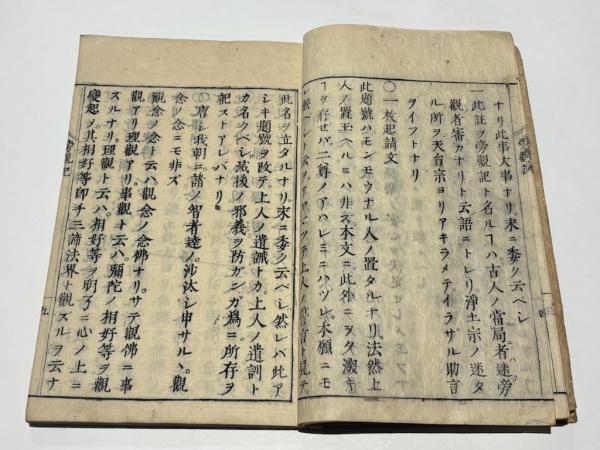 ナリ此事大事ナリ。末ニ委ク云ベシ
一此註ヲ旁觀記ト名ルコハ。古人ノ當局者迷旁
觀者審カナリト云語ニトレリ。淨土宗ノ迷タ
ル所ヲ天台宗ヨリアキラメテイラザル助言
ヲイフトナリ
〇一枚起請文
此題號ハモンモウナル人ノ置タルナリ。法然上
人ノ置玉ヘルニハ非ズ本文ニ此外ニヲク深キ
コヲ存セバ。二尊ノアハレミニハヅレ。本願ニモ
此名ヲ立タルナリ。末ニ委ク云ベシ然レバ此ア
シキ題號ヲ改テ。上人ノ遺誡トカ。上人ノ遺訓ト
カ名ツベシ。滅後ノ邪義ヲ防ガンガ爲ニ所存ヲ
記ストアレバナリ
〇唐土我朝ニ諸ノ智者達ノ。沙汰シ申サルヽ。觀
念ノ念ニモ非ズ
觀念ノ念ト云ハ觀念ノ念佛ナリ。サテ觀佛ニ事
觀アリ理觀アリ。事觀ト云ハ。彌陀ノ相好等ヲ觀
ズルナリ。理觀ト云ハ。相好等ヲ明了ニ心ノ上ニ
變起シ其相好等即チ三諦法界ト觀ズルヲ云ナ
旁觀記
五
四